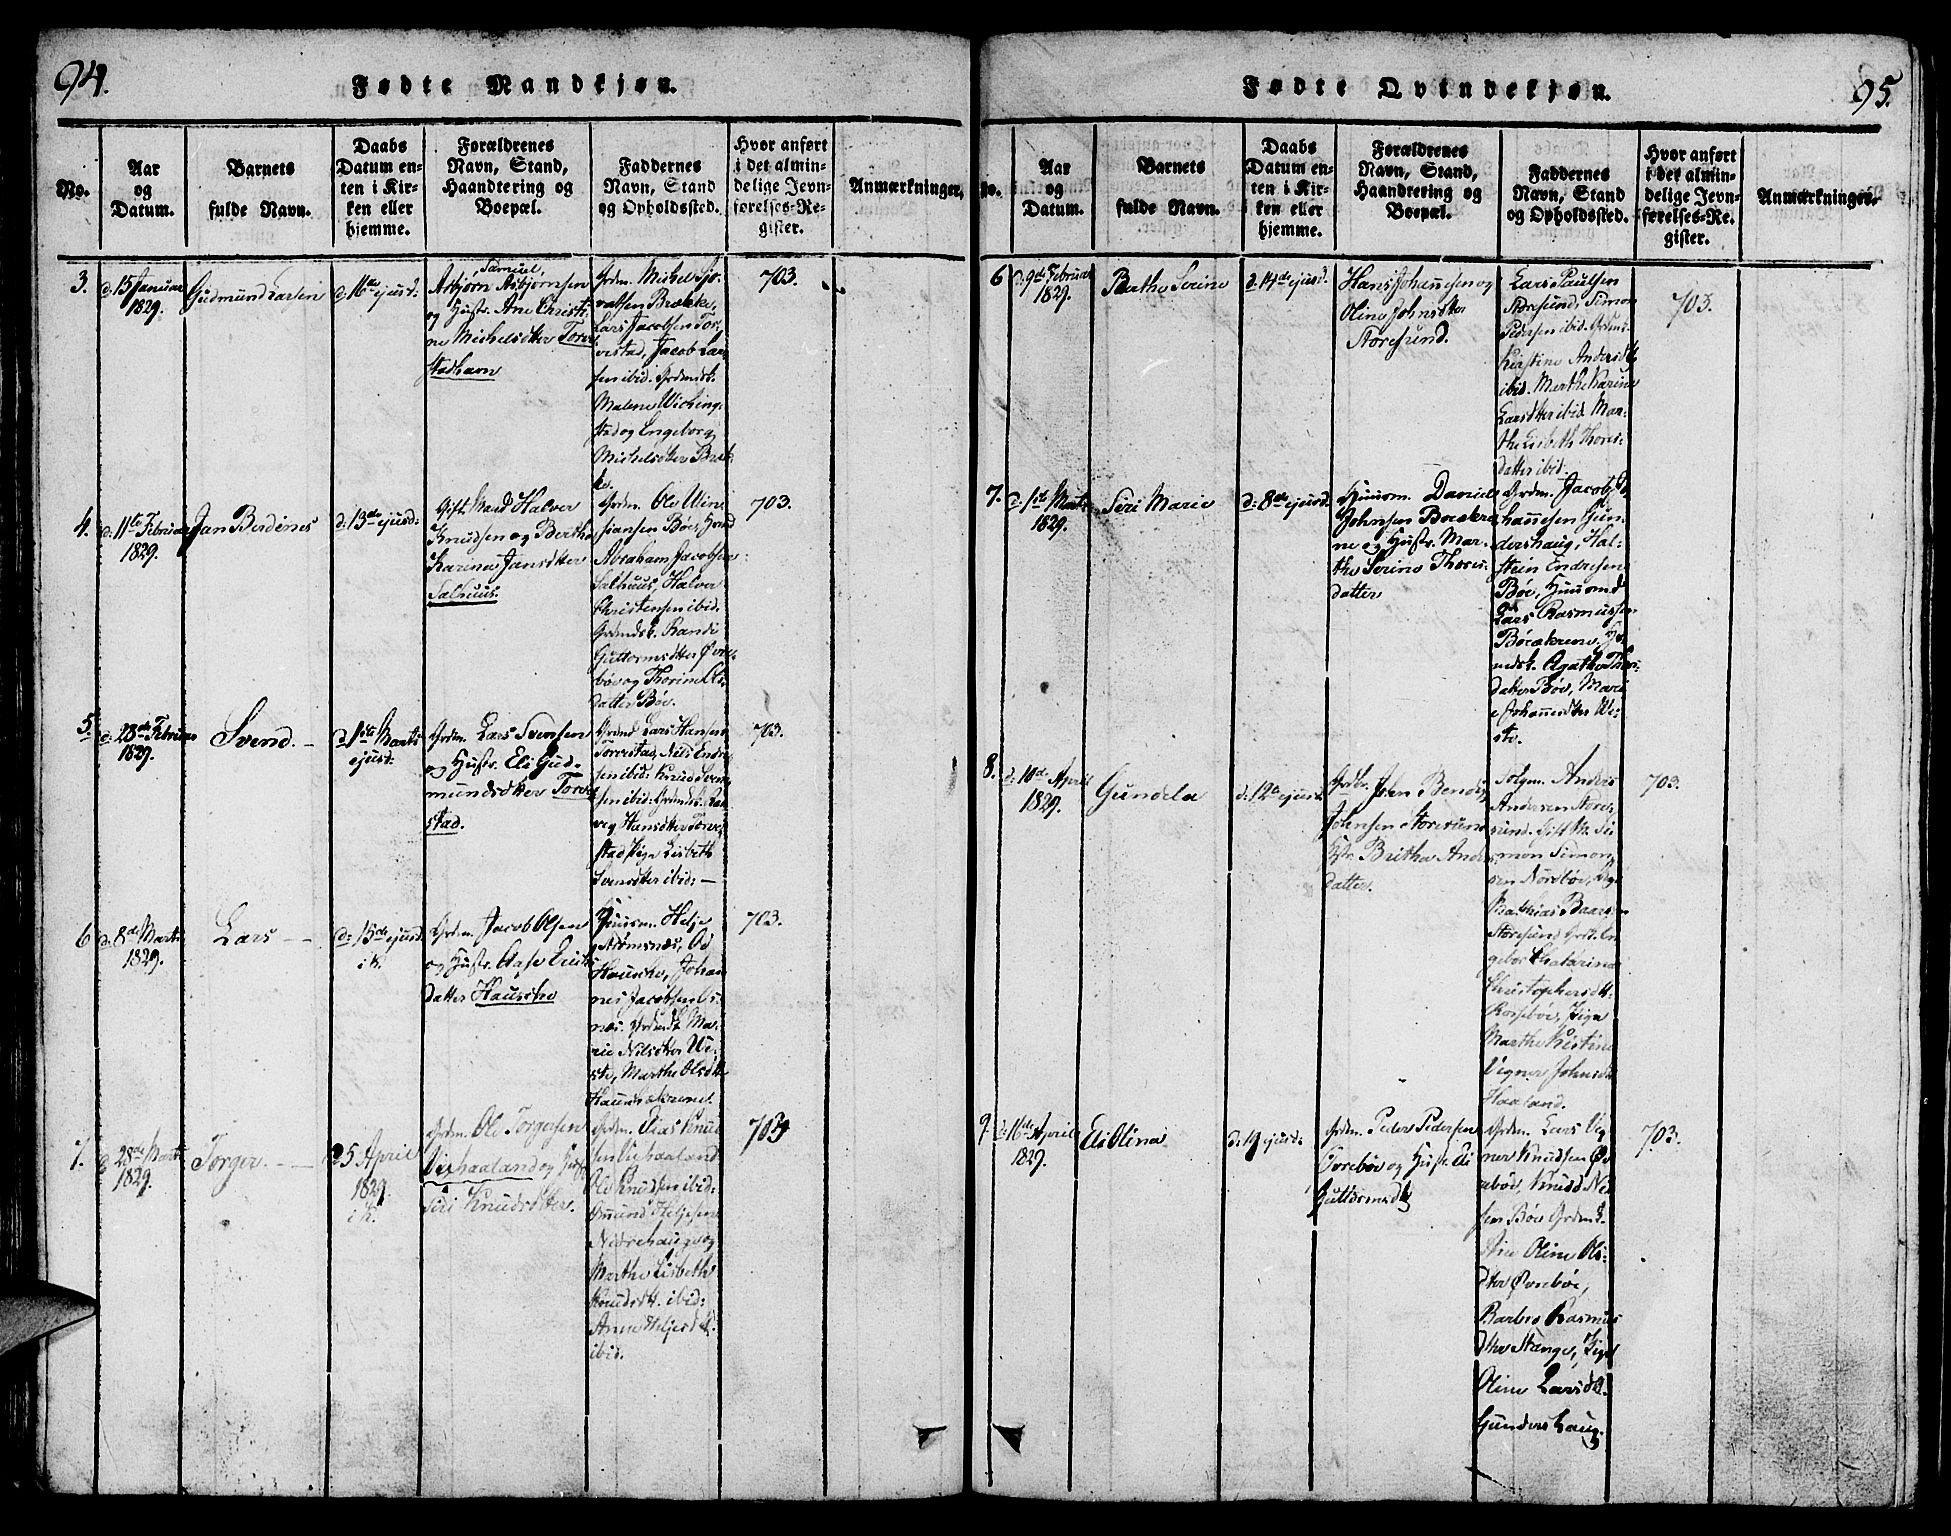 94.
Fødte Mandkjøn.
No.
Aar
og
Datum.
Barnets
fulde Navn.
Daabs
Datum en-
ten i Kir-
ken eller
hjemme.
Forældrenes
Navn, Stand,
Haandtering og
Boepæl.
Faddernes
Navn, Stand
og Opholdssted.
Hvor anført
i det almin-
delige Jevn-
førelses-Re-
gister.
Anmærkninger.
3.
d. 15 Januar
1829.
Gudmund Larsen
d. 16de ejusd:
Samuel,
Asbjørn Asbjørnsen
og Hustr. Ane Christi-
ne Michelsdtter Torve-
stadhavn
Grdm. Michel
vattsen Brække,
Lars Jacobsen Tor-
vestad, Jacob Lar-
sen ibid.
Malene Wiching-
stad og Engeborg
Michelsdtter Bræk-
ke.
703.
4.
d. 11te Februar
1829.
Jan Berdines
d: 13de ejusd:
Gift Mand Halver
Knudsen og Berthe
Karine Jansdtter
Salhuus.
Grdm. Ole
Boe,
Abraham Jacobsen
Salhuus, Halver
Christensen ibid.
Grdmdsk. Randi
Guttormsdtter Øvre-
bøe og Thorine Els-
datter Bøe.
703.
5.
d. 28de Februar
1829.
Svend. –
d. 1ste Marts
ejusd:
Grdm. Lars Svensen
og Hustr. Eli Gud-
mundsdtter Torve-
stad.
Grdmd Lars Hansen
Torvestad, Nils Endre-
sen ibid: Knud Sven-
sen ibid:
Hansdtter Torve-
stad Pige Lisbeth
Svensdtter ibid: –
703.
6
d. 8de Marts
1829.
Lars – –
d: 15de ejusd.
i K.
Grdm. Jacob Olsen
og Hustr. Aase Erichs-
datter Hauske
Huusm. Helje
Strømsnæs,
Hauske, Johan-
nes Jacobsen
Ma-
rie Nilsdtter We-
ste, Marthe Olsdtt.
703.
7.
d. 28de Marts
1829.
Torger – –
25 April
1829.
i K.
Grdm. Ole Torgersen
Viehaaland og Hustr.
Siri Knudsdtter.
Grdm. Elias Knud-
sen Viehaaland
Ole Knudsen ibid:
Heljesen
Nedrehaug og
Marthe Lisbeth
Knudsdt. ibid:
Anne Heljesdt.
ibid.
703
95.
Fødte Qvindekjøn.
No.
Aar
og
Datum.
Barnets
fulde Navn.
Daabs
Datum en-
ten i Kir-
ken eller
hjemme.
Forældrenes
Navn, Stand,
Haandtering og
Boepæl.
Faddernes
Navn, Stand
og Opholdssted.
Hvor anført
i det almin-
delige Jevn-
førelses-Re-
gister.
Anmærkninger.
6
d. 9de Februar
1829.
Berthe Serine
d. 14de ejusd.
Hans Johannesen og
Oline Johnsdtter
Storesund.
Lars Paulsen
Storesund, Simon
Pedersen ibid. Grdmsk.
Kirstine Andersdtt.
ibid. Marthe Karine
Larsdtter ibid. Mar-
the Lisbeth Thores-
datter ibid.
703.
7.
d. 1ste Marts
1829.
Seri Marie
d: 8de ejusd.
Huusm. Daniel
Johnsen Bøeækre-
ne og Hustr. Mar-
the Serine Thores-
datter
Grdm. Jacob Jo-
hannesen Gun-
dershaug, Hal-
stein Endresen
Bøe, Huusmd
Lars Rasmussen
Bøeækrene,
Agathe Thores-
datter Bøe, Mari-
e Johannesdtter We-
ste.
8.
d: 10de April
1829.
Gundela
d: 12te ejusd.
John Bendig
Johnsen Storesund
Hstr. Britha Anders-
datter.
Anders
Andersen Store-
sund. Gift M. Si-
mon Simon-
sen Nordbøe,
Mathias Baars-
Storesund En-
gebor Khatarina
Christophersdtt.
Pige
Marthe Kistine
Johnsdt.
Haaland.
703.
9.
d: 16de April
1829.
Eli Olina
d: 19 ejusd:
Grdm. Peder Pedersen
Øvrebøe og Hustr. Eli
Guttormsdtt.
Grdm. Lars Vig-
ner Knudsen Øv-
rebøe, Knud Nil-
sen Bøe Grdmsk.
Ane Oline Ols-
dtter Øvrebøe,
Barbro Rasmus-
dtter Stange, Pige
Oline Larsdtt.
Gundershaug.
703.